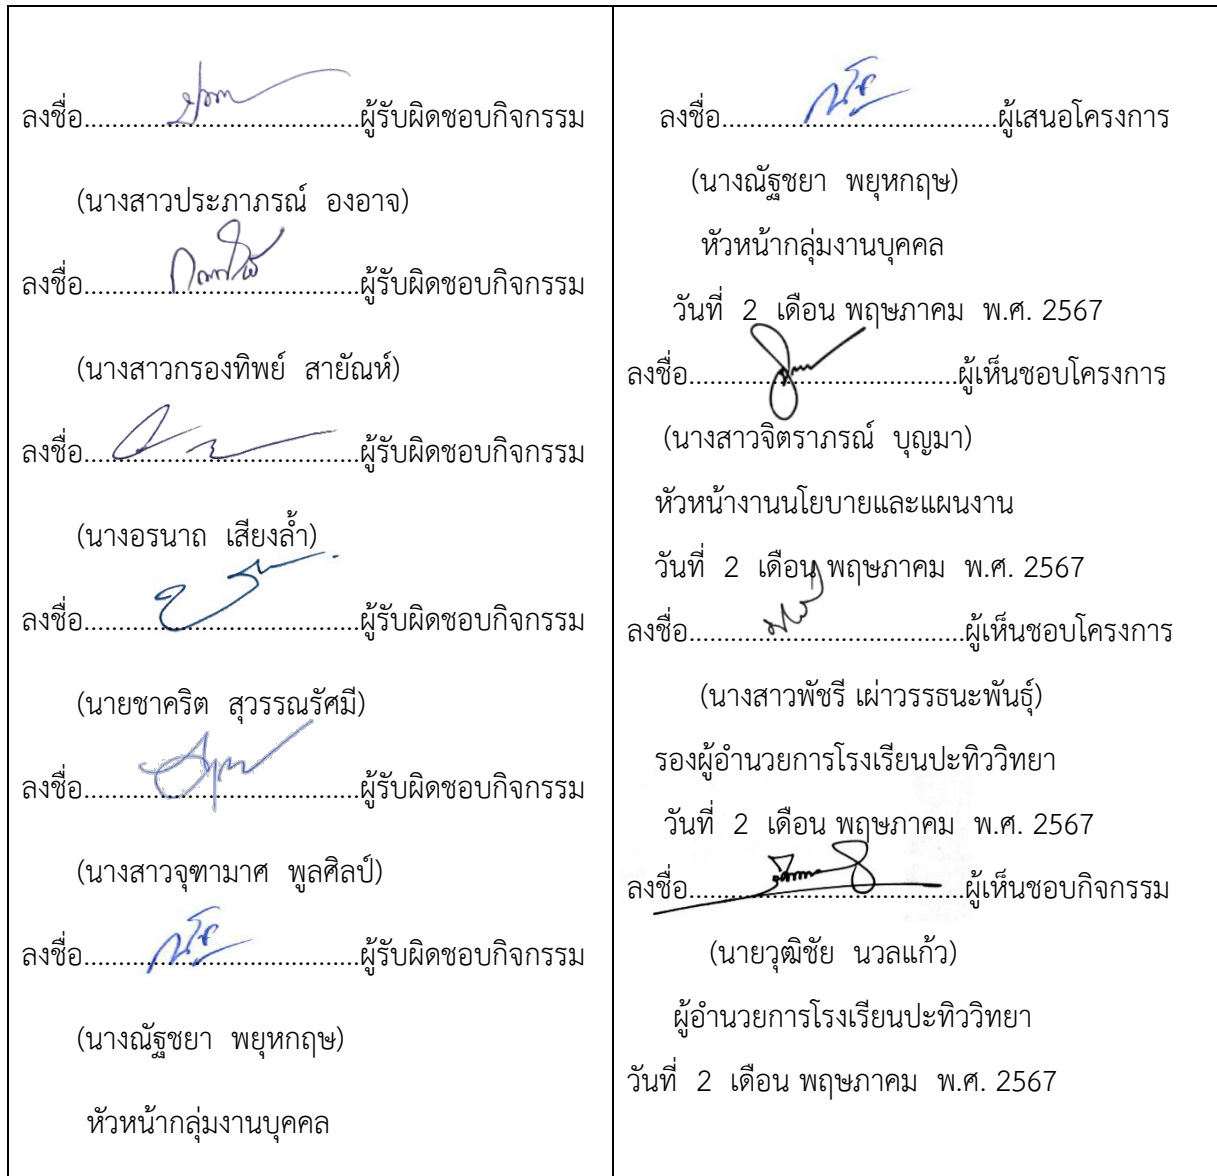 ลงชื่อ........................................ผู้รับผิดชอบกิจกรรม
(นางสาวประภาภรณ์ องอาจ)
ลงชื่อ........................................ผู้รับผิดชอบกิจกรรม
(นางสาวกรองทิพย์ สายัณห์)
ลงชื่อ........................................ผู้รับผิดชอบกิจกรรม
(นางอรนาถ เสียงล้ำ)
ลงชื่อ........................................ผู้รับผิดชอบกิจกรรม
(นายชาคริต สุวรรณรัศมี)
ลงชื่อ........................................ผู้รับผิดชอบกิจกรรม
(นางสาวจุฑามาศ พูลศิลป์)
ลงชื่อ........................................ผู้รับผิดชอบกิจกรรม
(นางณัฐชยา พยุหกฤษ)
หัวหน้ากลุ่มงานบุคคล
ลงชื่อ........................................ผู้เสนอโครงการ
(นางณัฐชยา พยุหกฤษ)
หัวหน้ากลุ่มงานบุคคล
วันที่ 2 เดือน พฤษภาคม พ.ศ. 2567
ลงชื่อ.......................................ผู้เห็นชอบโครงการ
(นางสาวจิตราภรณ์ บุญมา)
หัวหน้างานนโยบายและแผนงาน
วันที่ 2 เดือน พฤษภาคม พ.ศ. 2567
ลงชื่อ........................................ผู้เห็นชอบโครงการ
(นางสาวพัชรี เผ่าวรรธนะพันธุ์)
รองผู้อำนวยการโรงเรียนปะทิววิทยา
วันที่ 2 เดือน พฤษภาคม พ.ศ. 2567
ลงชื่อ........................................ผู้เห็นชอบกิจกรรม
(นายวุฒิชัย นวลแก้ว)
ผู้อำนวยการโรงเรียนปะทิววิทยา
วันที่ 2 เดือน พฤษภาคม พ.ศ. 2567